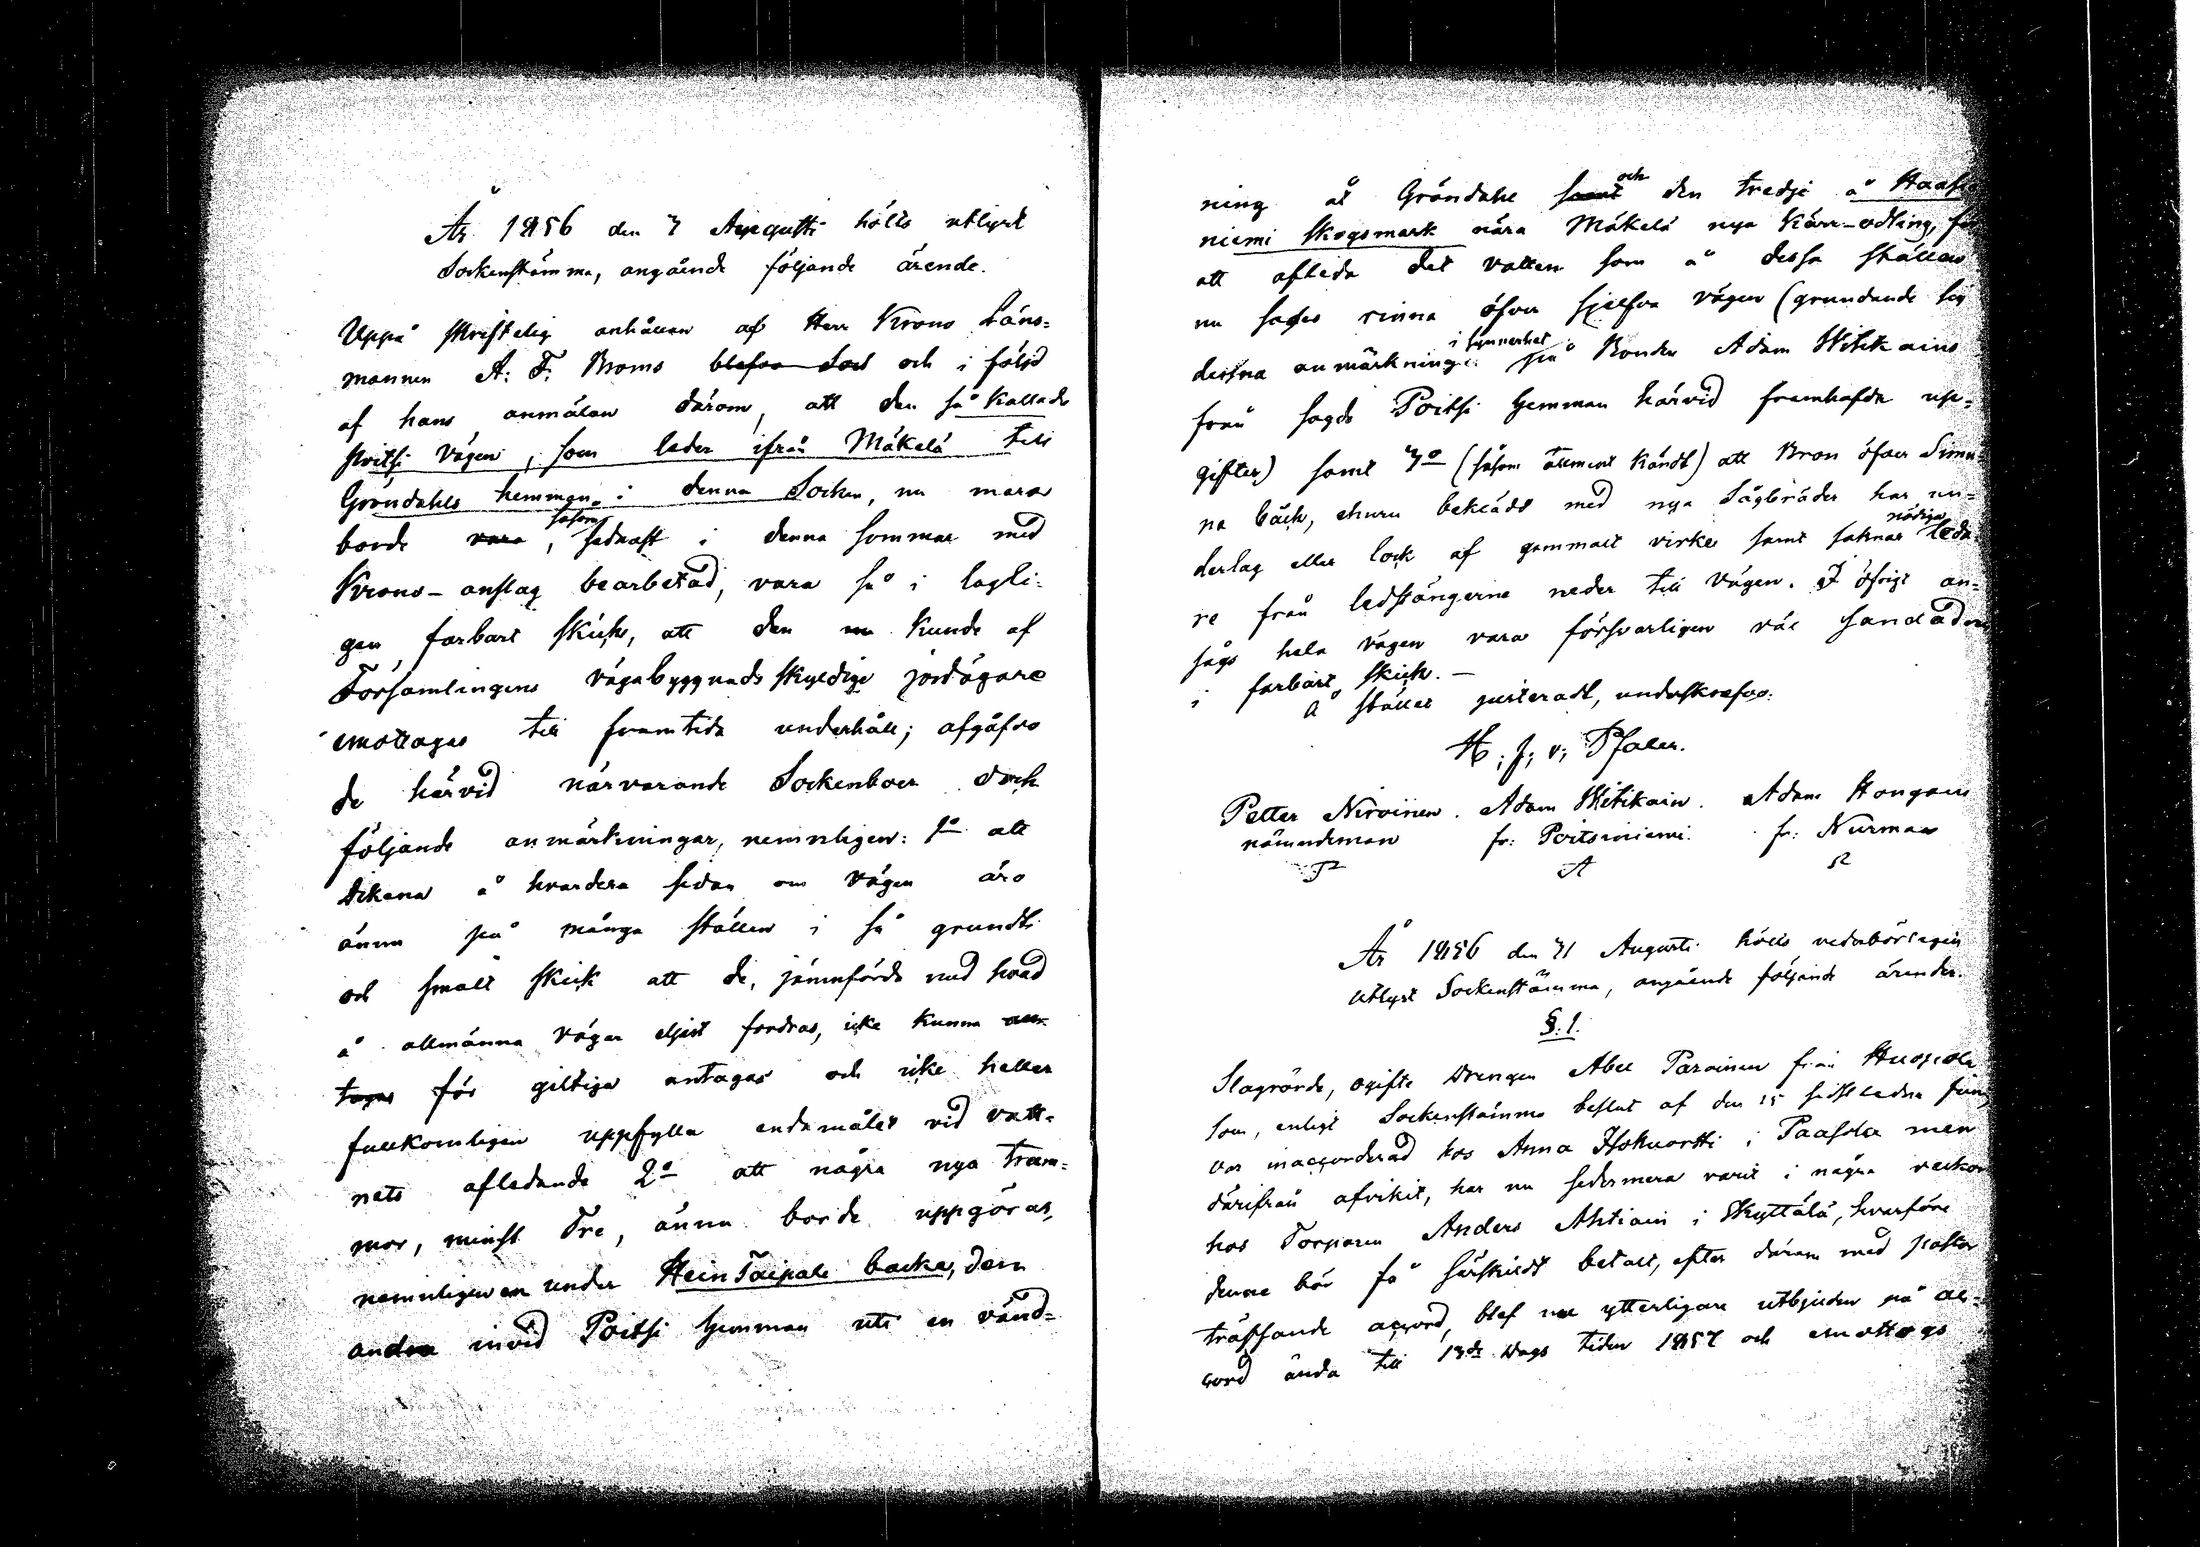 År 1856 den 3 Augusti hölls utlyst
Sockenstämma, angående följande ärende.
Uppå skriftelig anhållan af Herr Krono Läns-
mannen A: F. Broms blefvo Soc och i följd
af hans anmälan därom, att den så kallade
Poitsi Vägen, som leder ifrån Mäkelä till
Gröndahls hemman i denna Socken, nu mera
borde vara, såsom sednast i denna Sommar med
Krono-anslag bearbetad, vara så i lagli-
gen farbart skick, att den nu kunde af
Församlingens vägabyggnadsskyldige jordägare
emottagas till framtida underhåll; afgåfvo
de härvid närvarande Sockenboer dock
följande anmärkningar, nemnligen: 1o att
Dikena å hvardera sidan om vägen äro
ännu på många ställen i så grundt
och smalt skick att de, jämnförde med hvad
å allmänna vägar eljest fordras, icke kunna an-
tagas för giltiga antagas och icke heller
fullkomligen uppfylla endamålet vid vatt-
nets afledande 2o att några nya trum-
mor, minst Tre, ännu borde uppgöras,
nemnligen en under HeinTaipale backe, den
andra invid Poitsi hemman uti en vänd-
ning åt Gröndahl samt och den tredje å Haapa
niemi skogsmark nära Mäkelä nya Kärr-odling, för
att afleda det vatten som å dessa ställen
nu sages rinna öfver sjelfva vägen (grundande sig
dessa anmärkningar i synnerhet på Bonden Adam Witikains
från sagde Poitsi hemman härvid framhafda up-
gifter) samt 3o (såsom allment kändt) att Bron öfver Simu
na bäck, ehuru beklädt med nya Sågbräder har un-
derlag eller lock af gammalt virke samt saknar nödiga leda-
re från ledstängerne neder till Vägen. I öfrigt an-
sågs hela vägen vara försvarligen väl sandad och
i farbart skick. —
Å stället justeradt, underskrefvo:
H. J. v. Pfaler.
Petter Niroinen. Adam Witikain. Adam Hongain
nämndeman fr: Poitsiniemi. fr: Nurmaa
År 1856 den 31 Augusti hölls vederbörligen
utlyst Sockenstämma, angående följande ärender.
§. 1.
Slagrörde, ogifte Drengen Abel Paroinen från Huopola
som, enligt Sockenstämmo beslut af den 15 sidstledne Juni,
var inaccorderad hos Anna Hokuortti i Paasola men
därifrån afvikit, har nu sedermera varit i några veckor
hos Torparen Anders Ahtiain i Skyttälä, hvarföre
denne bör få särskildt betalt, efter därom med pastor
träffande accord, blef nu ytterligare utbjuden på ac-
cord ända till 13de Dags tiden 1857 och emottogs